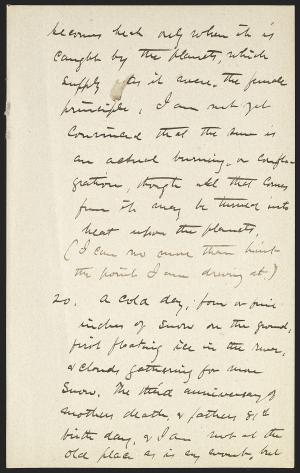 becomes heat only when it is
caught by the planets, which
supply as it were, the female
principle. I am not yet
convinced that the sun is
an actual burning, or confla-
gration, though all that comes
from it may be turned into
heat upon the planets.
(I can no more than hint
the point I am driving at.)
20. A cold day; four or five
inches of snow on the ground,
first floating ice in the river,
& clouds gathering for more
snow. The third anniversary of
mothers death, & fathers 81st
birth day, & I am not at the
old place as is my wont, but